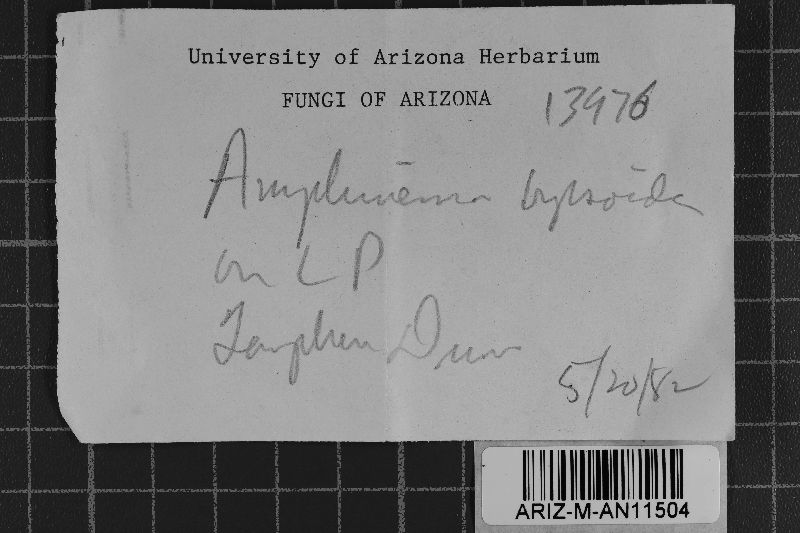 University of Arizona Herbarium
FUNGI OF ARIZONA
13976
Amphinema byssoides
on L P
Dun
5/20/82
ARIZ-M-AN11504